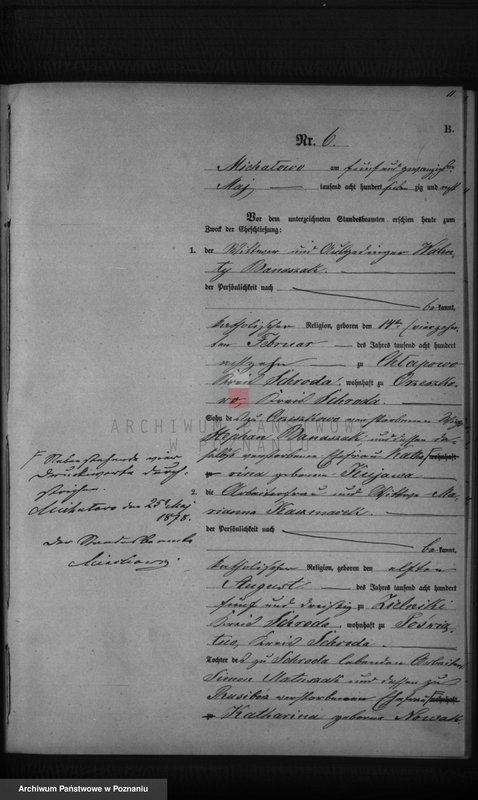 11
B.
Nr. 6.
Michalowo am fünf und zwanzigsten
Maj tausend acht hundert sieben zig und acht
Vor dem unterzeichneten Standesbeamten erschien heute zum
Zweck der Eheschließung:
1. der Wittwer und Ausgedinger Walen-
ty Banaszak.
der Persönlichkeit nach
be kannt,
katholischer Religion, geboren den 14ten (vierzehn-
ten Februar des Jahres tausend acht hundert
achtzehn zu Chlapowo
Kreis Schroda, wohnhaft zu Orzeszko-
wo, Kreis Schroda.
ARCHIWUM PAŃSTWOWE
W POZNANIU
Sohn des zu Orzeszkowo verstorbenen
Stephan Banaszak und dessen da-
selbst verstorbene Ehefrau Katha- wohnhaft
zu rina geborene Kujawa
2. die Arbeiterfrau und Wittwe Ma-
rianna Kaczmarek.
der Persönlichkeit nach
be kannt,
katholischen Religion, geboren den elften
August des Jahres tausend acht hundert
fünf und dreißig zu Zielniki
Kreis Schroda, wohnhaft zu
Kreis Schroda.
Tochter des zu Schroda lebenden Arbeiter
Simon Matuszak und dessen zu
verstorbenen Ehefrau wohnhaft
zu Katharina geborene Nowak.
Nebenstehende vier
Druckworte durch-
strichen.
Michalowo den 25 Maj
1878.
Der Standesbeamte
Archiwum Państwowe w Poznaniu